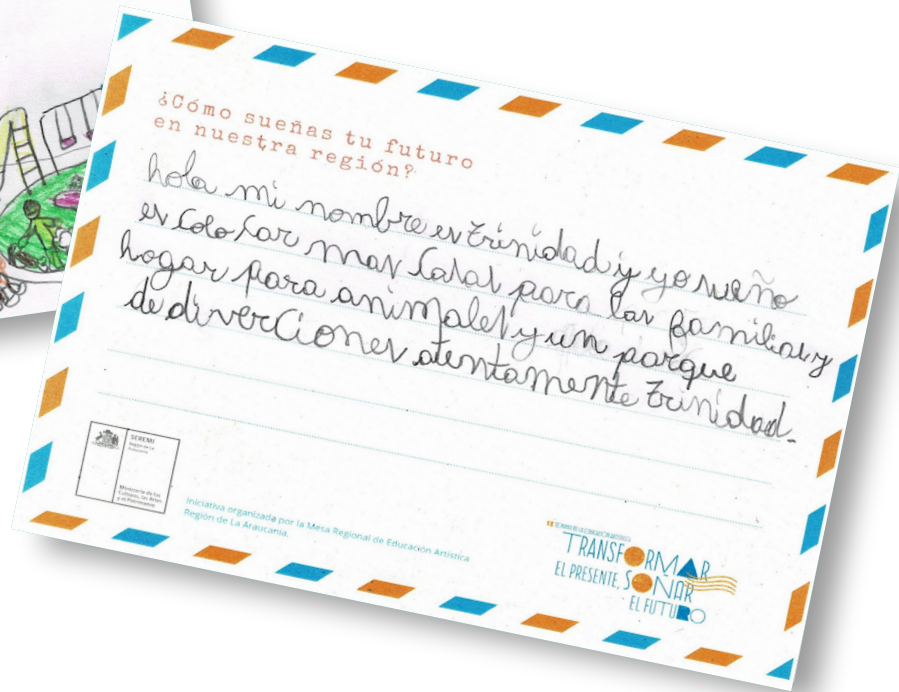 ¿Cómo sueñas tu futuro
en nuestra región?
hola mi nombre es trinidad y yo sueño
es colocar mas casas para las familias y
hogar para animales y un parque
de diverciones atentamente trinidad.
SEREMI
Región de La
Araucanía
Ministerio de las
Culturas, las Artes
y el Patrimonio
Iniciativa organizada por la Mesa Regional de Educación Artística
Región de La Araucanía.
TRANSFORMAR
EL PRESENTE, SOÑAR
EL FUTURO